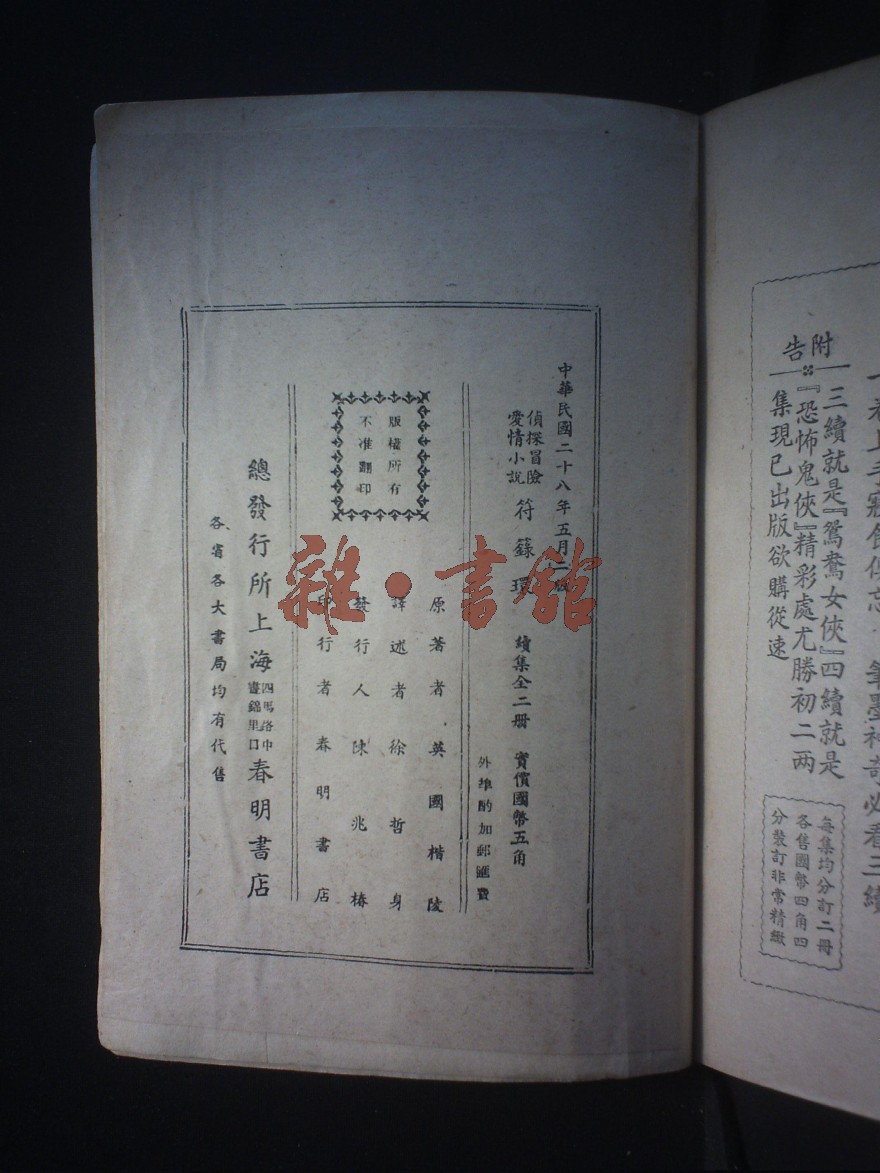 中華民國二十八年五月二版
偵探冒險
愛情小說
符籙環 續集全二冊 實價國幣五角
外埠酌加郵匯費
原著者英國楷陵
譯述者徐哲身
發行人陳兆椿
印行者春明書店
版權所有
不准翻印
總發行所上海四馬路中晝錦里口春明書店
各省各大書局均有代售
雜·書館
附告
三續就是『鴛鴦女俠』四續就是
『恐怖鬼俠』精彩處尤勝初二兩
集現已出版欲購從速
每集均分訂二冊
各售國幣四角四
分裝訂非常精緻